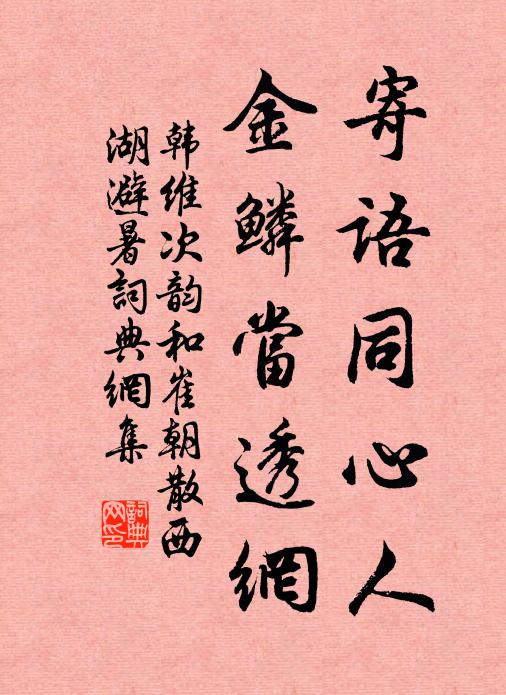 寄语同心人
金鳞當透網
韩维次韵和崔朝散西
湖避暑詞典網集
詞典
网印